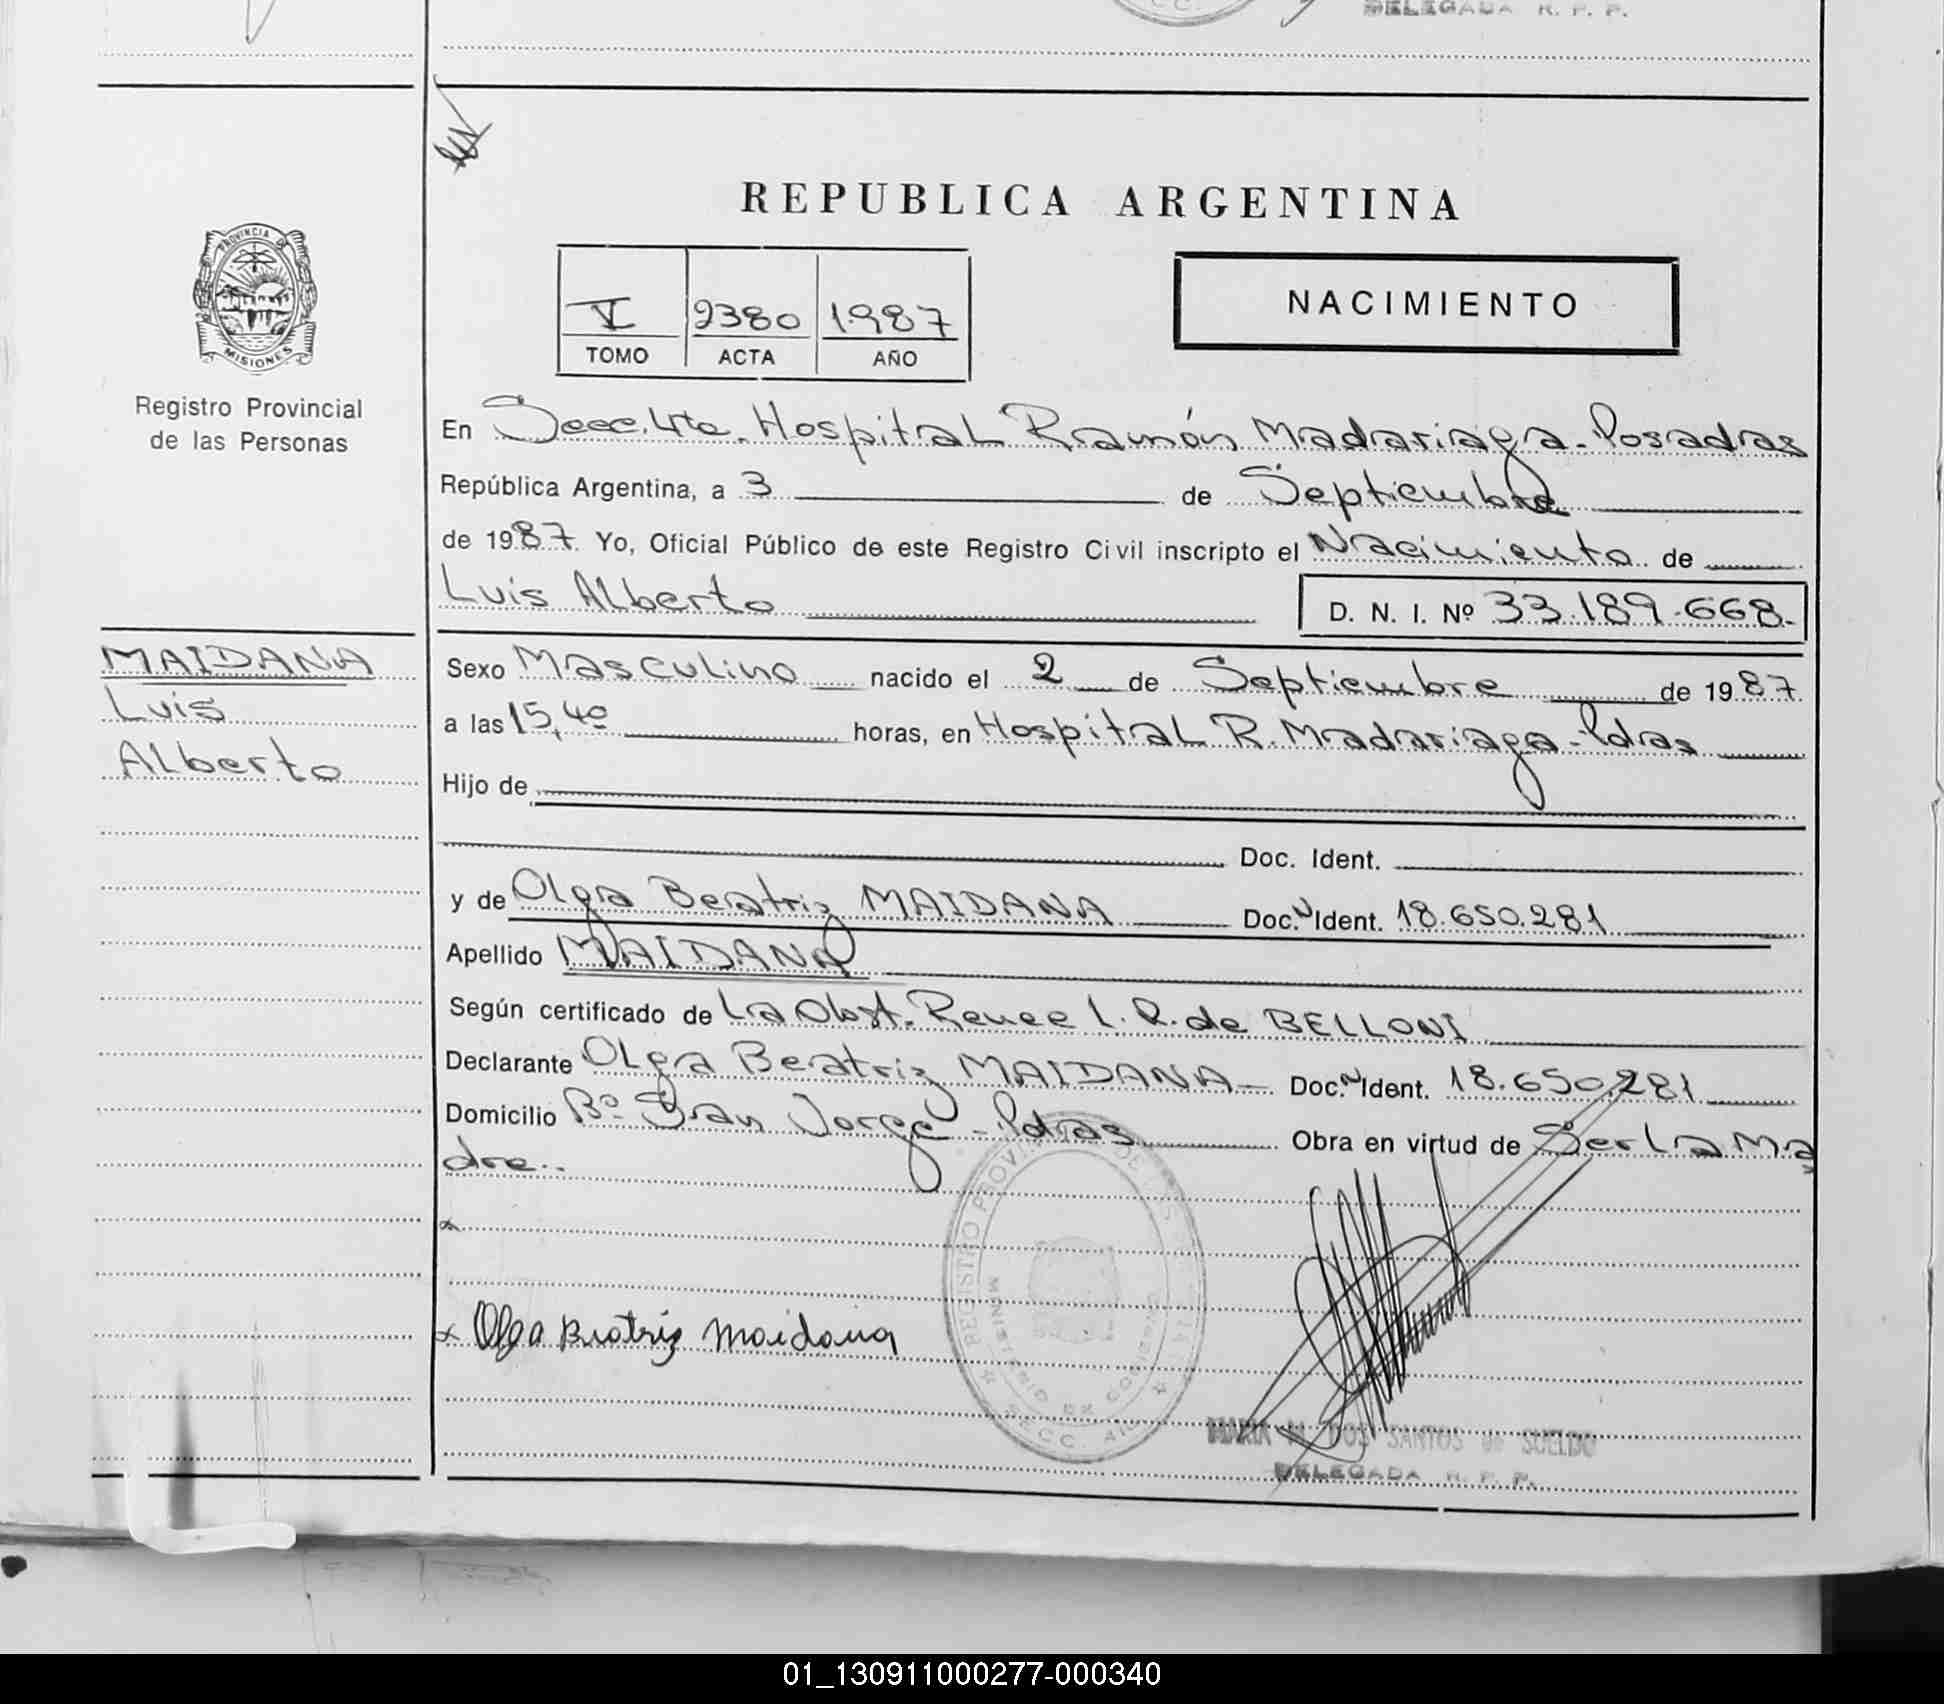 DELEGADA R. P. P.
REPUBLICA ARGENTINA
PROVINCIA DE
MISIONES
V 2380 1987
TOMO ACTA AÑO
NACIMIENTO
Registro Provincial
de las Personas
En Secc. 4ta. Hospital Ramón Madariaga - Posadas
República Argentina, a 3 de Septiembre
de 1987. Yo, Oficial Público de este Registro Civil inscripto el Nacimiento de
Luis Alberto D. N. I. Nº 33.189.668.-
MAIDANA
Luis
Alberto
Sexo Masculino nacido el 2 de Septiembre de 1987
a las 15,40 horas, en Hospital R. Madariaga - Pdas
Hijo de
Doc. Ident.
y de Olga Beatriz MAIDANA Doc. Ident. 18.650.281
Apellido MAIDANA
Según certificado de La Obst. Renee L. R. de BELLONI
Declarante Olga Beatriz MAIDANA - Doc. Ident. 18.650.281
Domicilio Bº San Jorge - Pdas Obra en virtud de Ser La Ma
dre..
x
x Olga Beatriz Maidana
REGISTRO PROVINCIAL DE LAS
MINISTERIO DE GOBIERNO
MARIA M. DOS SANTOS de SUELDO
DELEGADA R. P. P.
01_130911000277-000340